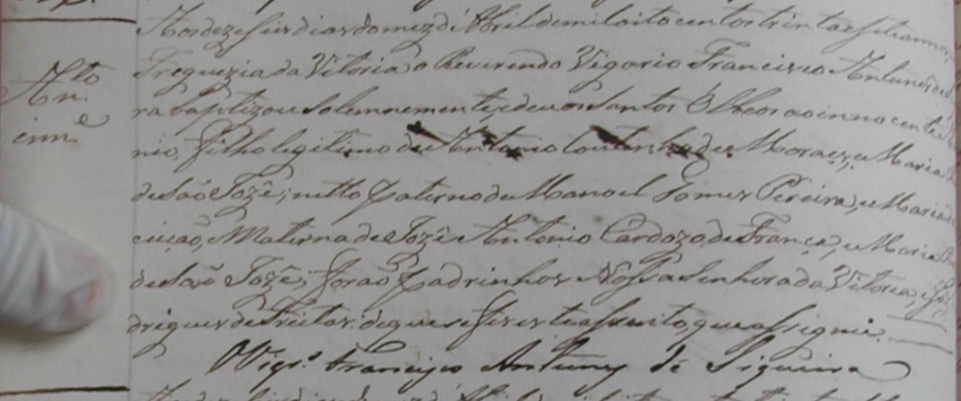 Aos dezeseis dias do mez d'Abril de mil oito centos trinta e sete annos,
Freguezia da Vitoria o Reverendo Vigario Francisco Antunes de
Anto
ra baptizou solemnemente, e deu os Santos Oleos ao innocente
Inn.
cinnᵉ
nio, filho legitimo de Antonio Coutinho de Moraes, e Maria
de São Jozê; netto Paterno de Manoel Gomes Pereira, e Maria
ceição, Materna de Jozê Antonio Cardozo de França, e Maria
de São Jozê; forão Padrinhos Nossa Senhora da Vitoria, e
drigues de Freitas: de que se fez este assento, que assignei.
O Vigrº Francisco Antunes de Siqueira